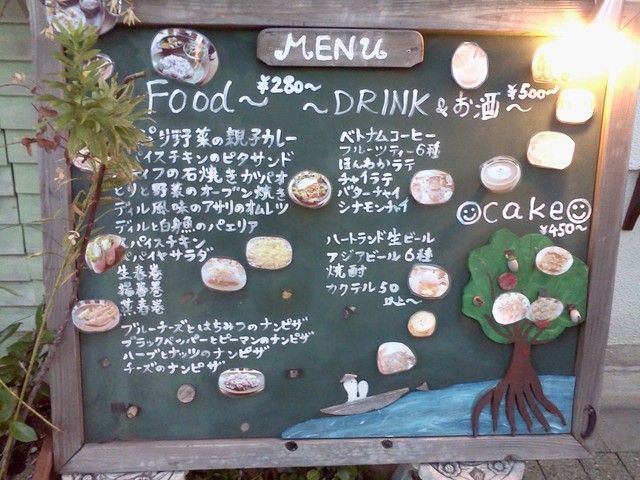 MENU
Food〜
¥280〜
〜DRINK&お酒〜
¥500〜
野菜の親子カレー
パイスチキンのピタサンド
イフの石焼きガパオ
とりと野菜のオーブン焼き
ディル風味のアサリのオムレツ
ディルと白身魚のパエリア
スパイスチキン
パパイヤサラダ
生春巻
揚春巻
蒸春巻
ブルーチーズとはちみつのナンピザ
ブラックペッパーとピーマンのナンピザ
ハーブとナッツのナンピザ
チーズのナンピザ
ベトナムコーヒー
フルーツティー6種
ほんわかラテ
チャイラテ
バターチャイ
シナモンチャイ
ハートランド生ビール
アジアビール6種
焼酎
カクテル50
以上〜
cake
¥450〜